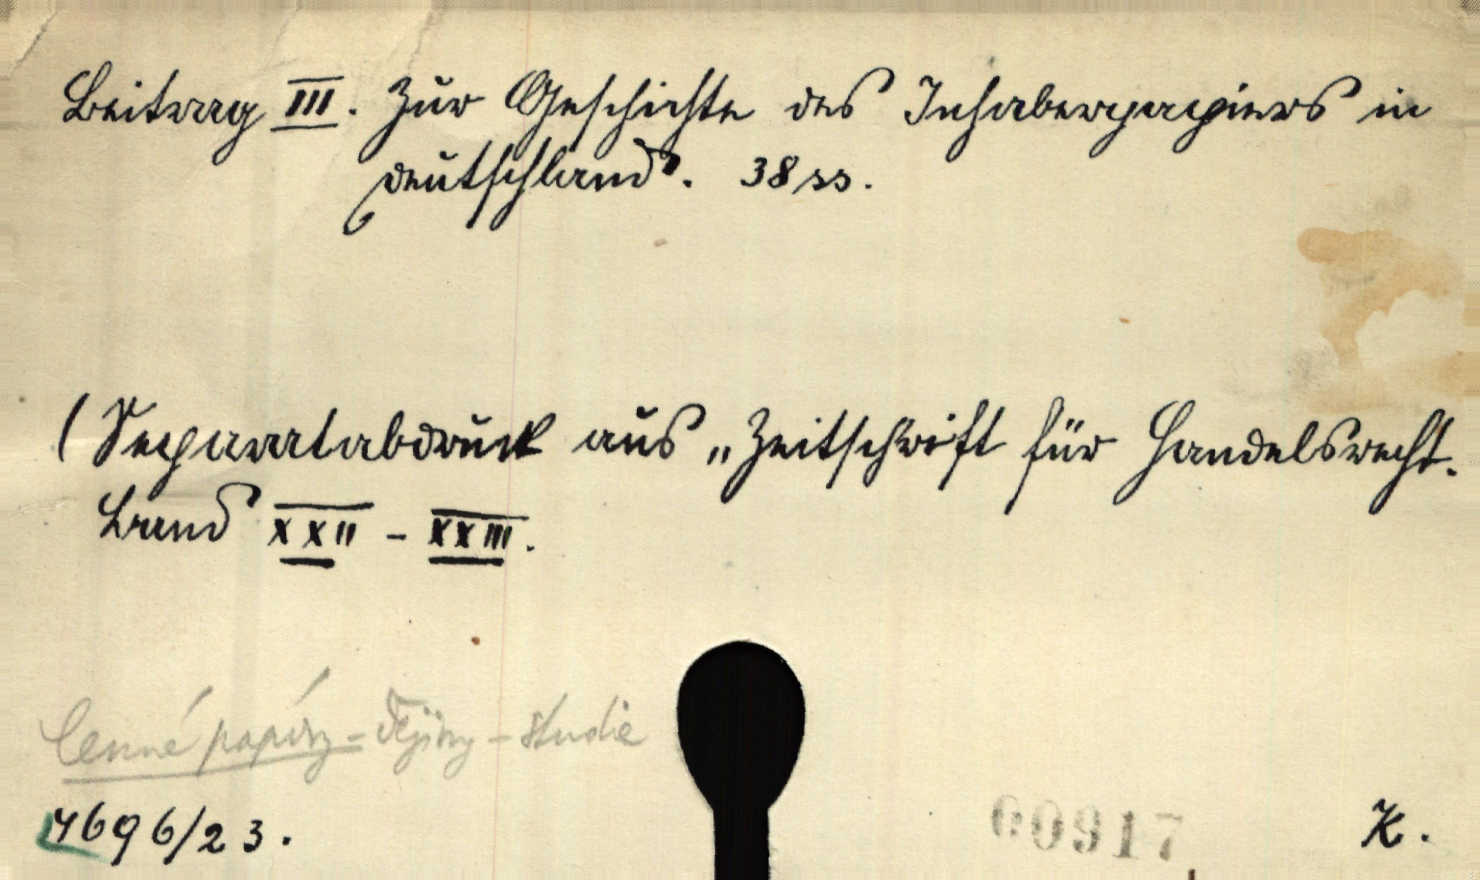 Beitrag III. Zur Geschichte des Inhaberpapiers in
Deutschland. 38 ss.
(Separatabdruck aus „Zeitschrift für Handelsrecht.
Band XXII - XXIII.
Cenné papíry - Dějiny - studie
4696/23.
00917
K.